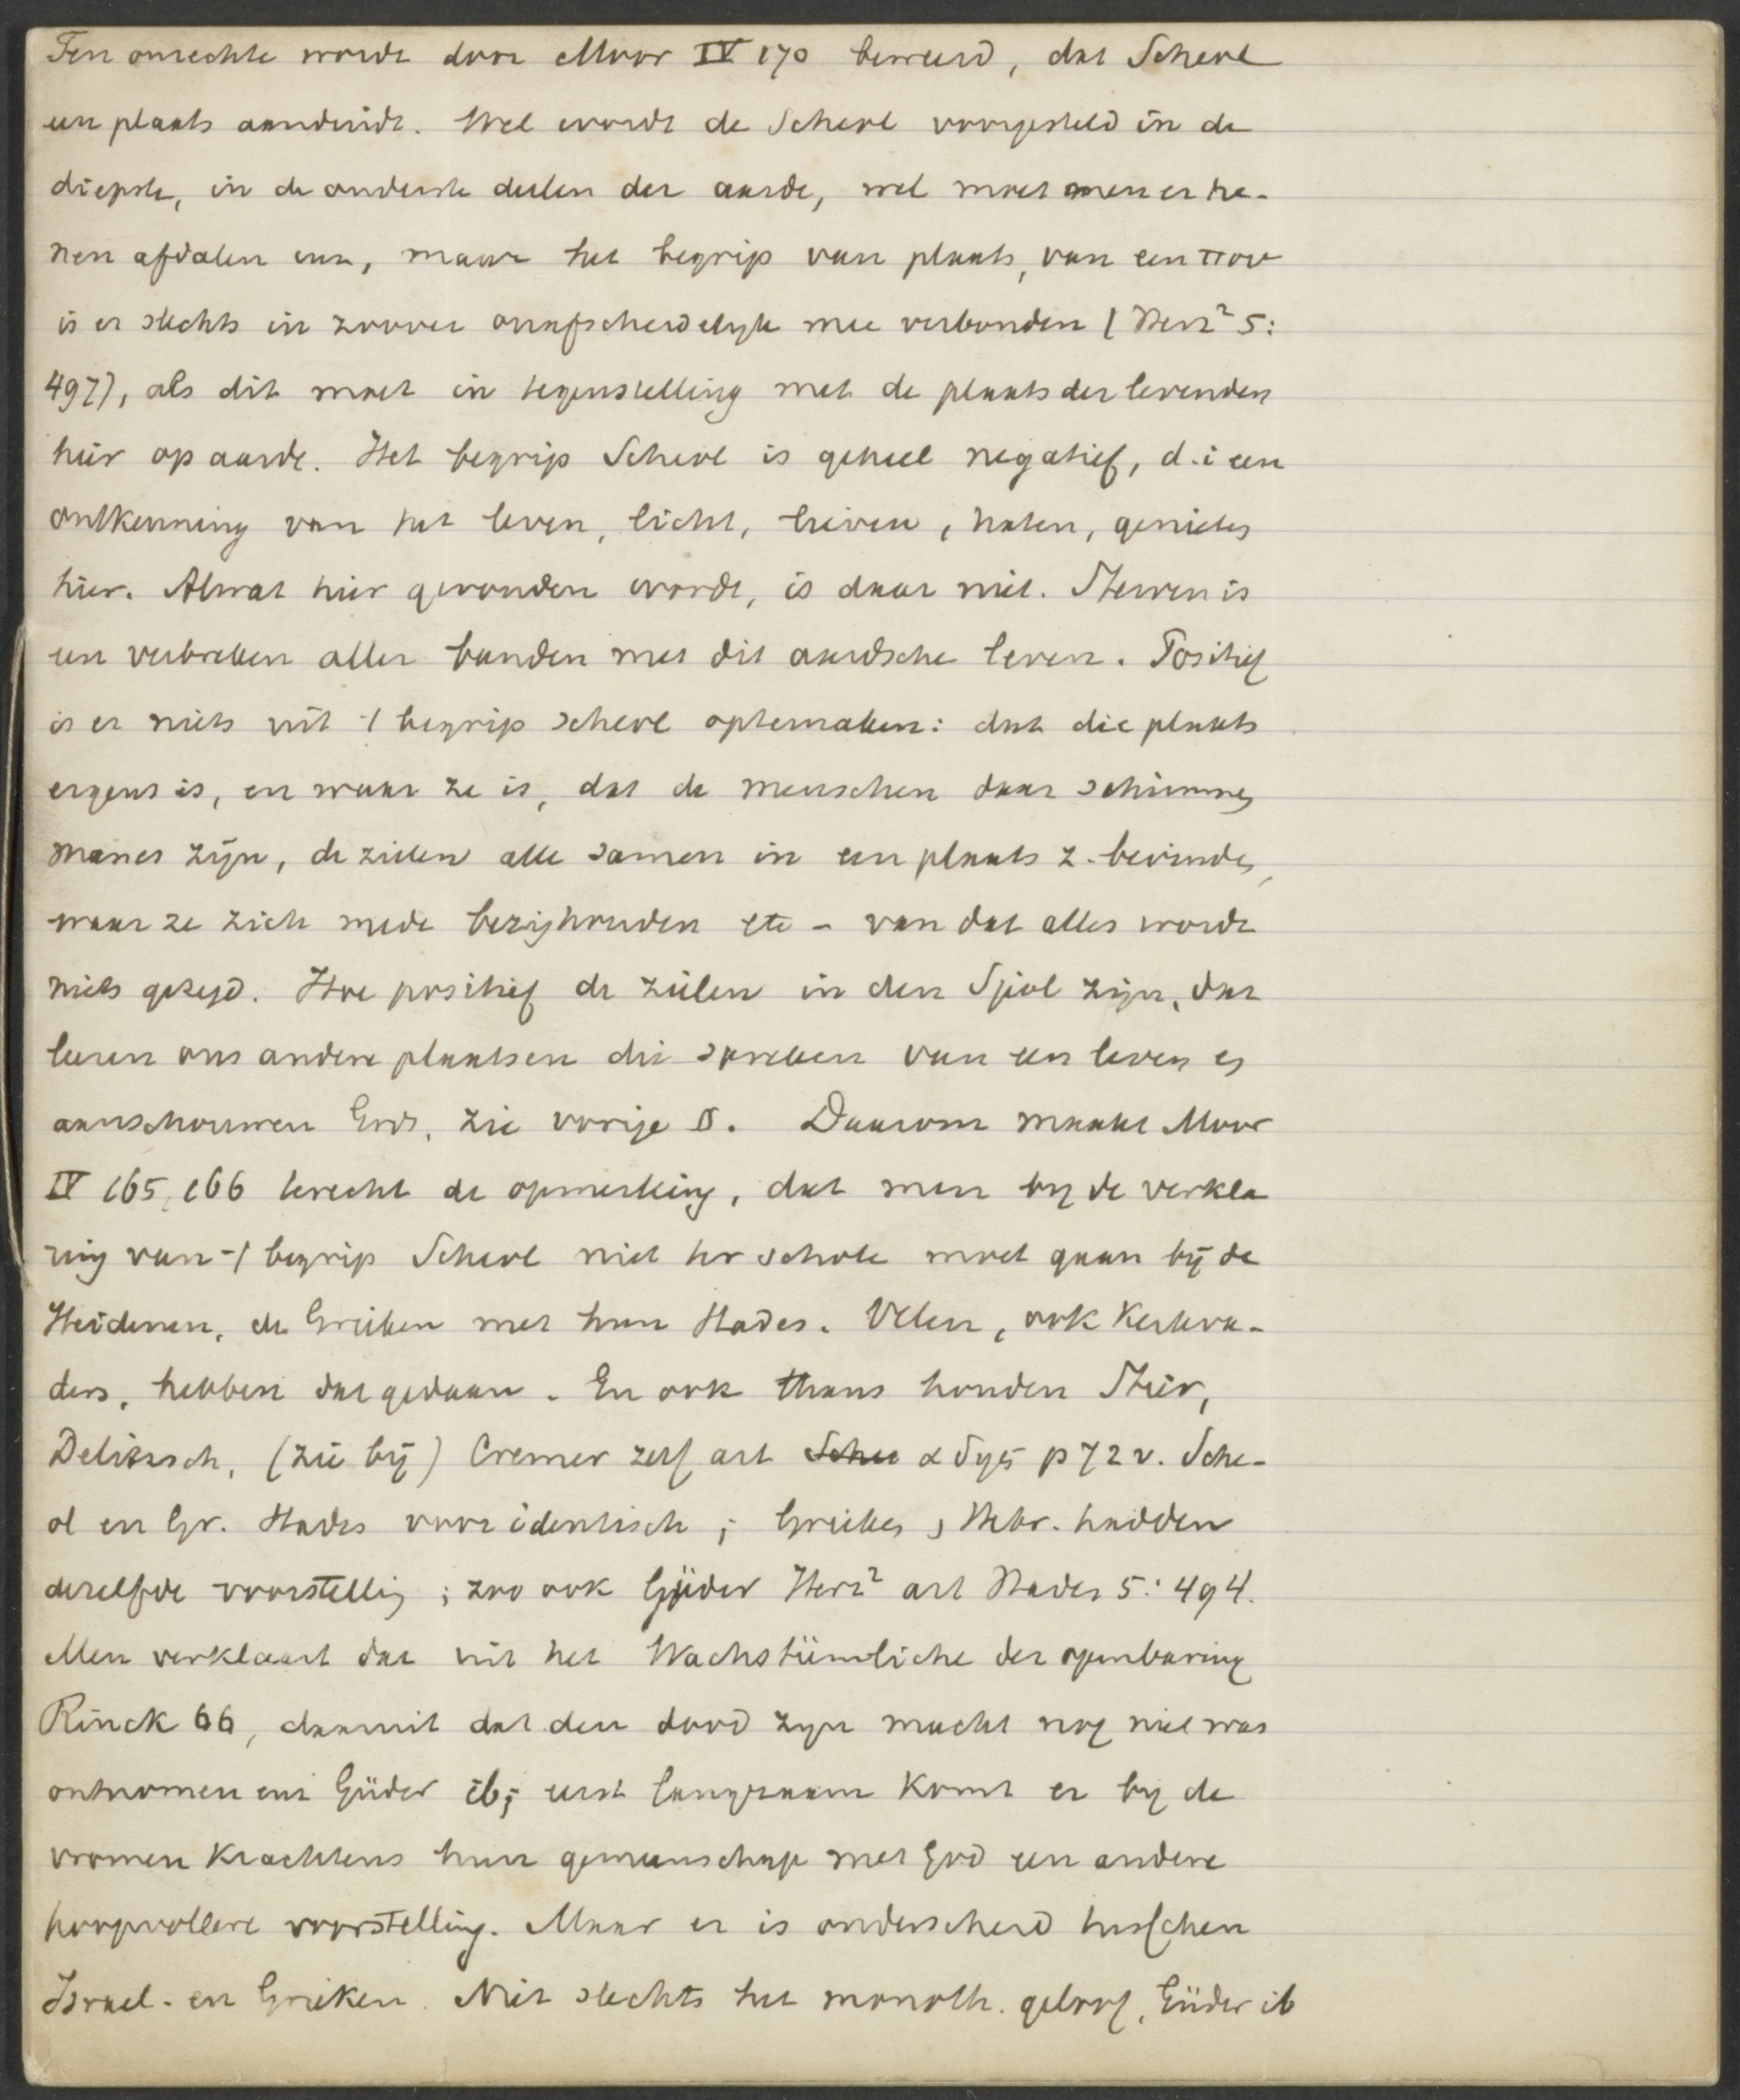 Ten onrechte wordt door Moor IV 170 beweerd, dat Scheol
een plaats aanduidt. Wel wordt de Scheol voorgesteld in de
diepste, in de onderste deelen der aarde, wel moet men er he-
nen afdalen enz, maar het begrip van plaats, van een που
is er slechts in zoover onafscheidelyk mee verbonden (Herz² 5:
497), als dit moet in tegenstelling met de plaats der levenden
hier op aarde. Het begrip Scheol is geheel negatief, d.i een
ontkenning van het leven, licht, lieven, haten, genieten
hier. Alwat hier gevonden wordt, is daar niet. Sterven is
een verbreken aller banden met dit aardsche leven. Positief
is er niets uit -t begrip scheol optemaken: dat die plaats
ergens is, en waar ze is, dat de menschen daar schimmen
manes zijn, de zielen alle samen in een plaats z. bevinden,
waar ze zich mede bezighouden etc - van dat alles wordt
niets gezegd. Hoe positief de zielen in den Sjeol zijn, dat
leeren ons andere plaatsen die spreken van een leven en
aanschouwen Gods, zie vorige §. Daarom maakt Moor
IV 165, 166 terecht de opmerking, dat men by de verkla
ring van -t begrip Scheol niet ter schole moet gaan bij de
Heidenen, de Grieken met hun Hades. Velen, ook Kerkva-
ders, hebben dat gedaan. En ook thans houden Stier,
Delitzsch, (zie bij) Cremer zelf art Scheo αδης p 72 v. Sche-
ol en Gr. Hades voor identisch; Grieken, Hebr. hadden
dezelfde voorstellig; zoo ook Güder Herz² art Hades 5: 494.
Men verklaart dat uit het Wachstümliche der openbaring
Rinck 66, daaruit dat den dood zyn macht nog niet was
ontnomen enz Güder ib; eerst langzaam komt er by de
vromen krachtens hun gemeenschap met God een andere
hoopvollere voorstelling. Maar er is onderscheid tusschen
Israel. en Grieken. Niet slechts het monoth. geloof, Güder ib